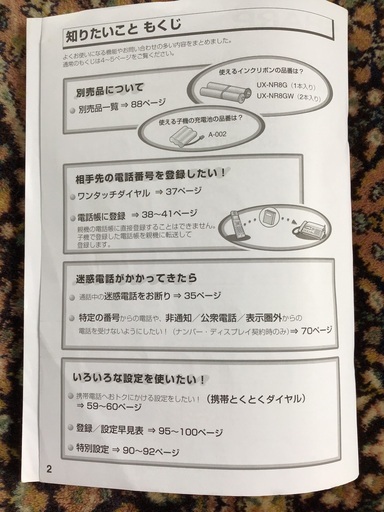 知りたいこと もくじ
よくお使いになる機能やお問い合わせの多い内容をまとめました。
通常のもくじは4~5ページをご覧ください。
別売品について
● 別売品一覧 ⇒ 88ページ
使えるインクリボンの品番は?
UX-NR8G (1本入り)
UX-NR8GW (2本入り)
使える子機の充電池の品番は?
A-002
相手先の電話番号を登録したい!
● ワンタッチダイヤル ⇒ 37ページ
● 電話帳に登録 ⇒ 38~41ページ
親機の電話帳に直接登録することはできません。
子機で登録した電話帳を親機に転送して
登録します。
迷惑電話がかかってきたら
● 通話中の迷惑電話をお断り ⇒ 35ページ
● 特定の番号からの電話や、非通知/公衆電話/表示圏外からの
電話を受けないようにしたい!(ナンバー・ディスプレイ契約時のみ)⇒ 70ページ
いろいろな設定を使いたい!
● 携帯電話へおトクにかける設定をしたい!(携帯とくとくダイヤル)
⇒ 59~60ページ
● 登録/設定早見表 ⇒ 95~100ページ
● 特別設定 ⇒ 90~92ページ
2